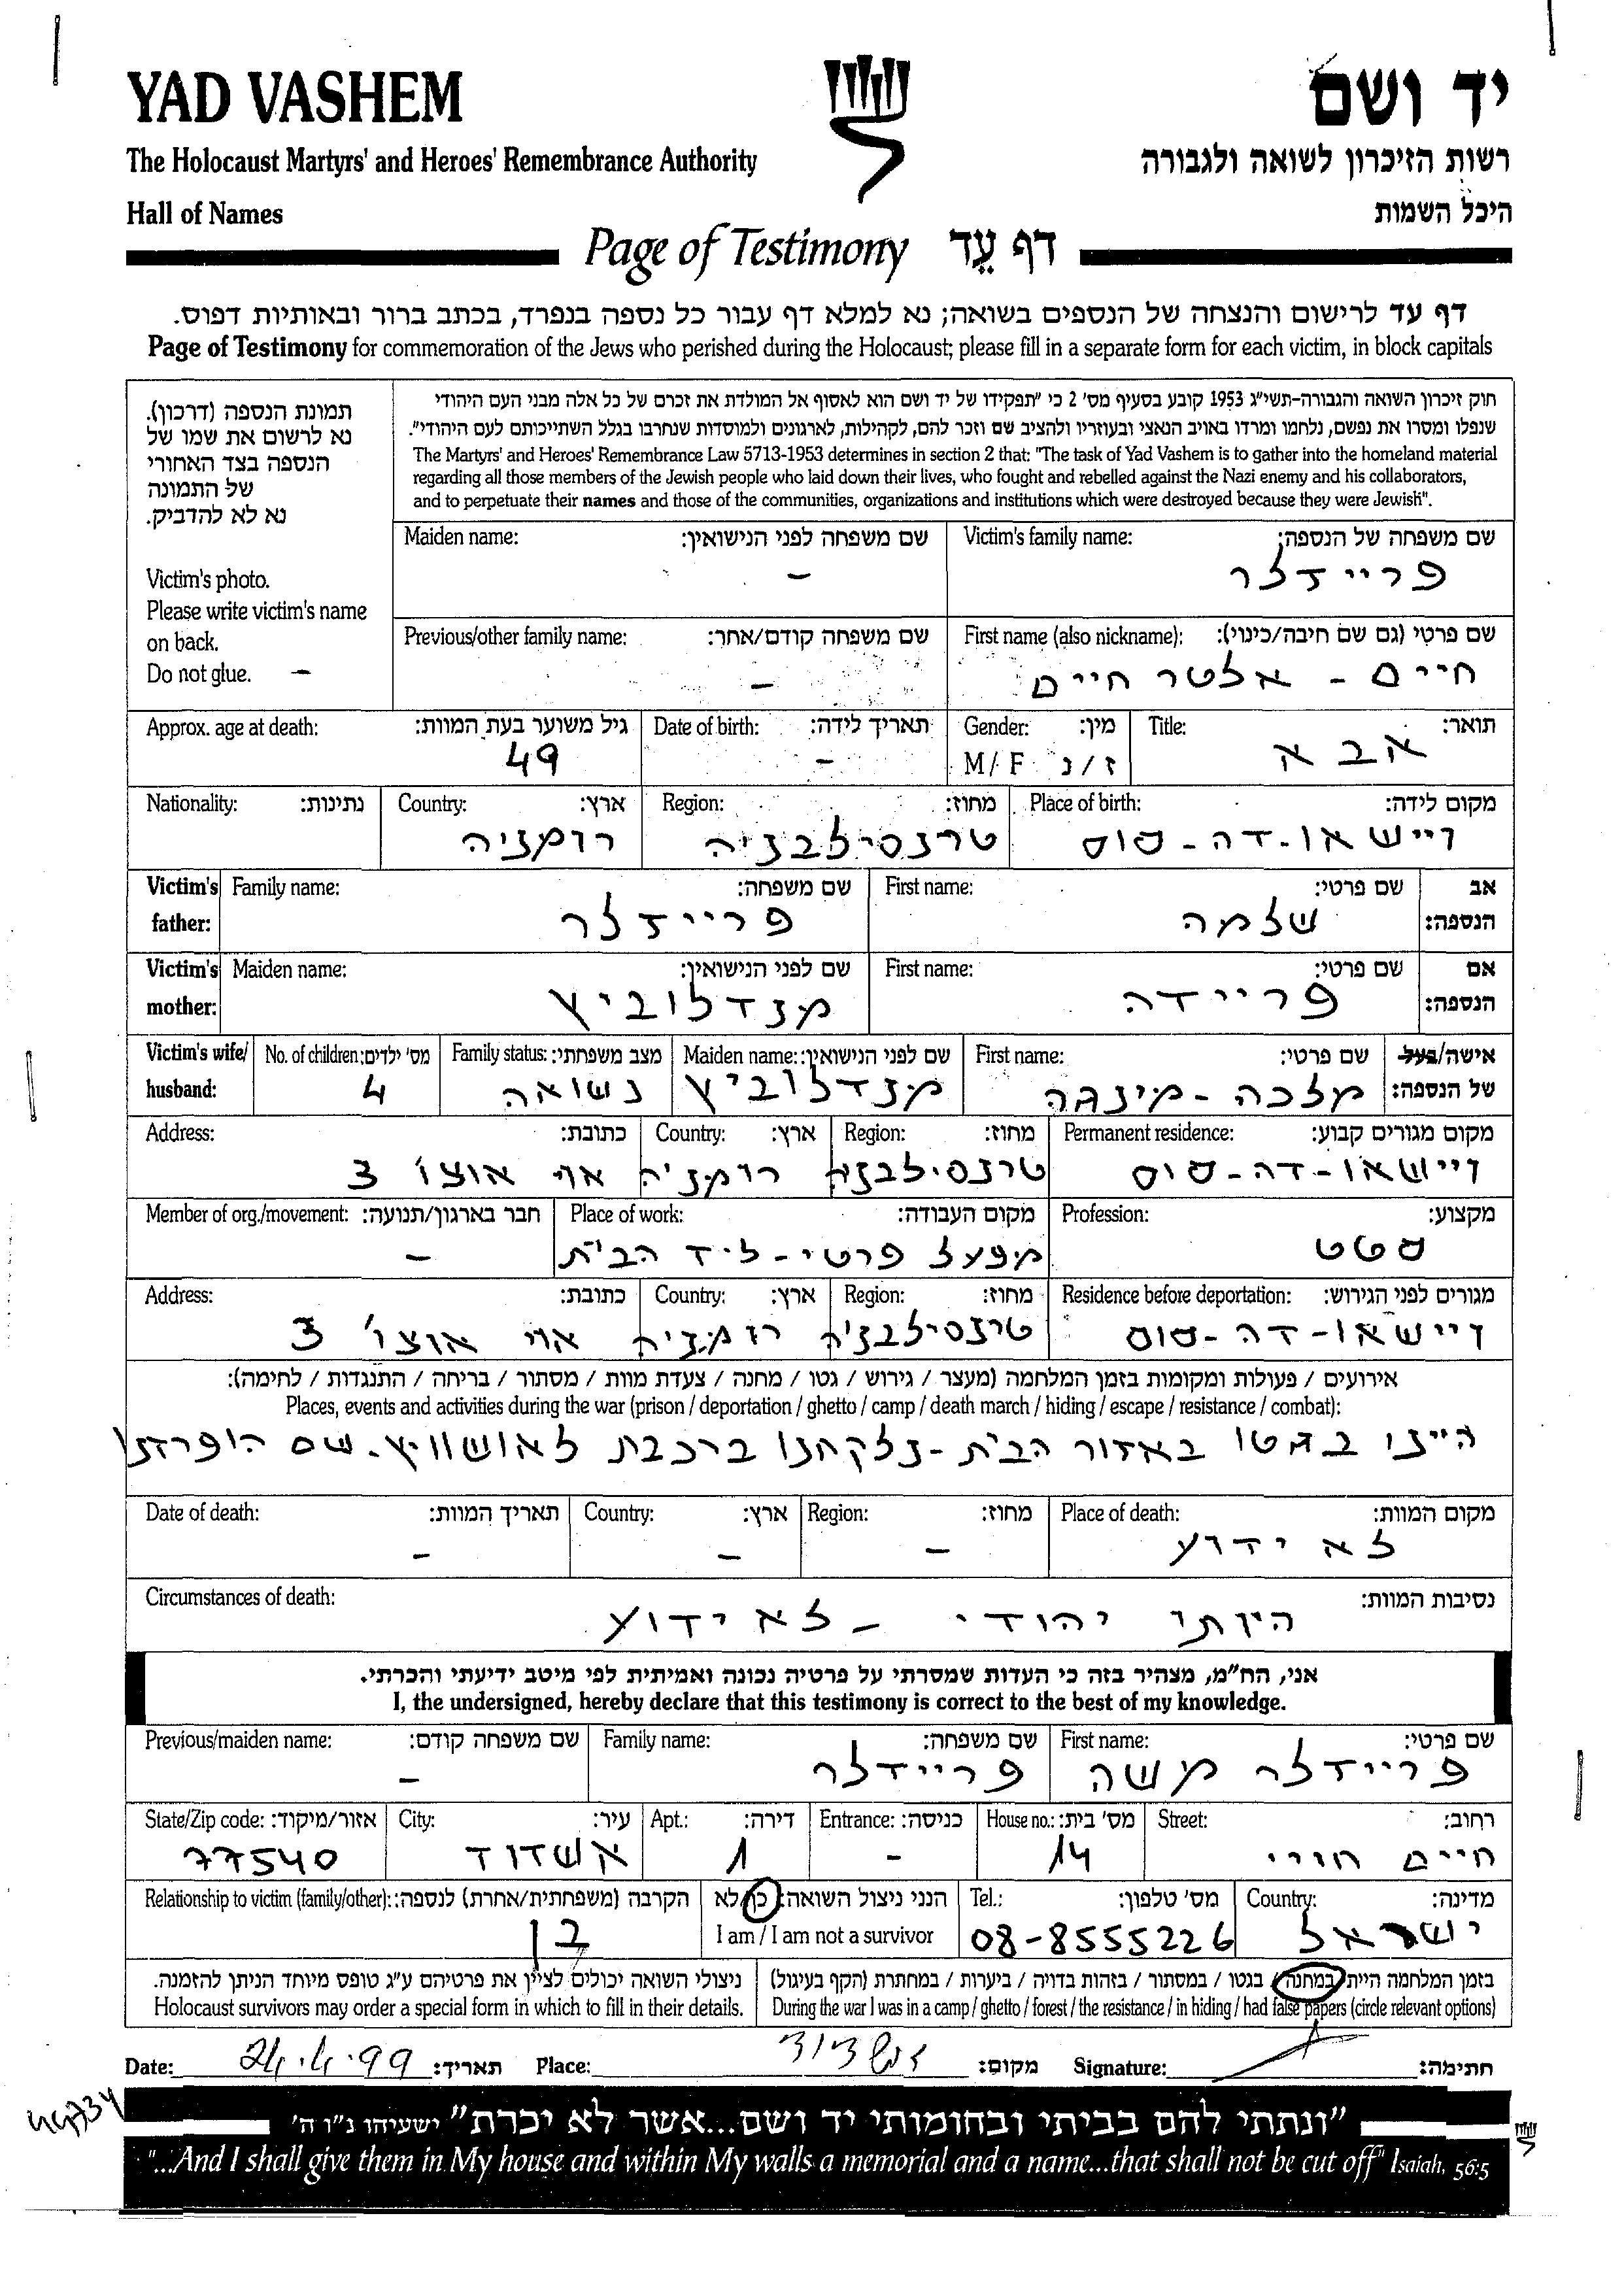 YAD VASHEM
יד ושם
The Holocaust Martyrs' and Heroes' Remembrance Authority
רשות הזיכרון לשואה ולגבורה
Hall of Names
היכל השמות
Page of Testimony דף עֵד
דף עד לרישום והנצחה של הנספים בשואה; נא למלא דף עבור כל נספה בנפרד, בכתב ברור ובאותיות דפוס.
Page of Testimony for commemoration of the Jews who perished during the Holocaust; please fill in a separate form for each victim, in block capitals
תמונת הנספה (דרכון).
נא לרשום את שמו של
הנספה בצד האחורי
של התמונה
נא לא להדביק.
Victim's photo.
Please write victim's name
on back.
Do not glue. –
חוק זיכרון השואה והגבורה-תשי"ג 1953 קובע בסעיף מס' 2 כי "תפקידו של יד ושם הוא לאסוף אל המולדת את זכרם של כל אלה מבני העם היהודי
שנפלו ומסרו את נפשם, נלחמו ומרדו באויב הנאצי ובעוזריו ולהציב שם וזכר להם, לקהילות, לארגונים ולמוסדות שנחרבו בגלל השתייכותם לעם היהודי".
The Martyrs' and Heroes' Remembrance Law 5713-1953 determines in section 2 that: "The task of Yad Vashem is to gather into the homeland material
regarding all those members of the Jewish people who laid down their lives, who fought and rebelled against the Nazi enemy and his collaborators,
and to perpetuate their names and those of the communities, organizations and institutions which were destroyed because they were Jewish".
שם משפחה של הנספה: Victim's family name:
פריידלר
שם משפחה לפני הנישואין: Maiden name:
–
שם פרטי (גם שם חיבה/כינוי): First name (also nickname):
חיים - אלטר חיים
שם משפחה קודם/אחר: Previous/other family name:
–
תואר: Title:
אבא
מין: Gender:
ז/נ M/F
תאריך לידה: Date of birth:
–
גיל משוער בעת המוות: Approx. age at death:
49
מקום לידה: Place of birth:
ויישאו-דה-סוס
מחוז: Region:
טרנסילבניה
ארץ: Country:
רומניה
נתינות: Nationality:
אב הנספה: Victim's father:
שם פרטי: First name:
שלמה
שם משפחה: Family name:
פריידלר
אם הנספה: Victim's mother:
שם פרטי: First name:
פריידה
שם לפני הנישואין: Maiden name:
מנדלוביץ
אישה/בעל של הנספה: Victim's wife/husband:
שם פרטי: First name:
מלכה - מינדה
שם לפני הנישואין: Maiden name:
מנדלוביץ
מצב משפחתי: Family status:
נשואה
מס' ילדים: No. of children:
4
מקום מגורים קבוע: Permanent residence:
ויישאו-דה-סוס
מחוז: Region:
טרנסילבניה
ארץ: Country:
רומניה
כתובת: Address:
3
מקצוע: Profession:
מקום העבודה: Place of work:
מפעל פרטי - ליד הבית
חבר בארגון/תנועה: Member of org./movement:
–
מגורים לפני הגירוש: Residence before deportation:
ויישאו-דה-סוס
מחוז: Region:
טרנסילבניה
ארץ: Country:
רומניה
כתובת: Address:
3
אירועים / פעולות ומקומות בזמן המלחמה (מעצר / גירוש / גטו / מחנה / צעדת מוות / מסתור / בריחה / התנגדות / לחימה):
Places, events and activities during the war (prison / deportation / ghetto / camp / death march / hiding / escape / resistance / combat):
היינו בגטו באזור הבית - נלקחנו ברכבת לאושוויץ - שם הופרדנו
מקום המוות: Place of death:
לא ידוע
מחוז: Region:
–
ארץ: Country:
–
תאריך המוות: Date of death:
–
נסיבות המוות: Circumstances of death:
היותי יהודי - לא ידוע
אני, הח"מ, מצהיר בזה כי העדות שמסרתי על פרטיה נכונה ואמיתית לפי מיטב ידיעתי והכרתי.
I, the undersigned, hereby declare that this testimony is correct to the best of my knowledge.
שם פרטי: First name:
פריידלר משה
שם משפחה: Family name:
פריידלר
שם משפחה קודם: Previous/maiden name:
–
רחוב: Street:
חיים חורי
מס' בית: House no.:
14
כניסה: Entrance:
–
דירה: Apt.:
1
עיר: City:
אשדוד
אזור/מיקוד: State/Zip code:
77540
מדינה: Country:
ישראל
מס' טלפון: Tel.:
08-8555226
הנני ניצול השואה: כן/לא
I am / I am not a survivor
הקרבה (משפחתית/אחרת) לנספה: Relationship to victim (family/other):
בן
בזמן המלחמה היית במחנה / בגטו / במסתור / בזהות בדויה / ביערות / במחתרת (הקף בעיגול)
During the war I was in a camp / ghetto / forest / the resistance / in hiding / had false papers (circle relevant options)
ניצולי השואה יכולים לציין את פרטיהם ע"ג טופס מיוחד הניתן להזמנה.
Holocaust survivors may order a special form in which to fill in their details.
חתימה: Signature:
מקום: אשדוד Place:
תאריך: 24.4.99 Date:
"ונתתי להם בביתי ובחומותי יד ושם...אשר לא יכרת" ישעיהו נ"ו ה'
"...And I shall give them in My house and within My walls a memorial and a name...that shall not be cut off" Isaiah, 56:5